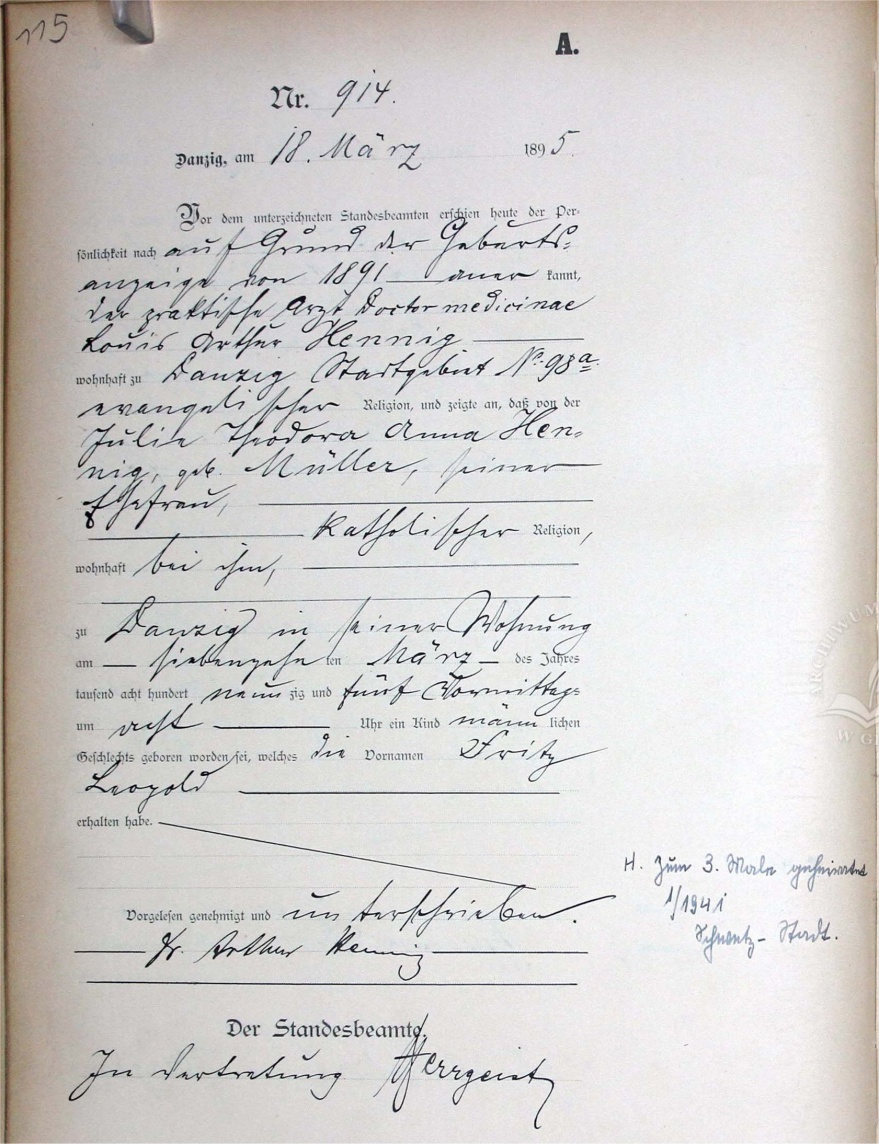 115
A.
Nr. 914.
Danzig, am 18. März 1895.
Vor dem unterzeichneten Standesbeamten erschien heute der Per-
sönlichkeit nach auf Grund der Geburts-
anzeige von 1891 — aner kannt,
der praktische Arzt Doctor medicinae
Louis Arthur Hennig —
wohnhaft zu Danzig Stadtgebiet No. 98a.
evangelischer Religion, und zeigte an, daß von der
Julie Theodora Anna Hen-
nig, geb. Müller, seiner
Ehefrau, —
— katholischer Religion,
wohnhaft bei ihm, —
zu Danzig in seiner Wohnung
am — siebenzehn ten März — des Jahres
tausend acht hundert neun zig und fünf Vormittags
um acht — Uhr ein Kind männ lichen
Geschlechts geboren worden sei, welches die Vornamen Fritz
Leopold —
erhalten habe.
H. Zum 3. Male geheiratet
1/1941
Schwetz - Stadt.
Vorgelesen genehmigt und unterschrieben.
— Dr. Arthur Hennig —
Der Standesbeamte.
In Vertretung
ARCHIWUM
W G